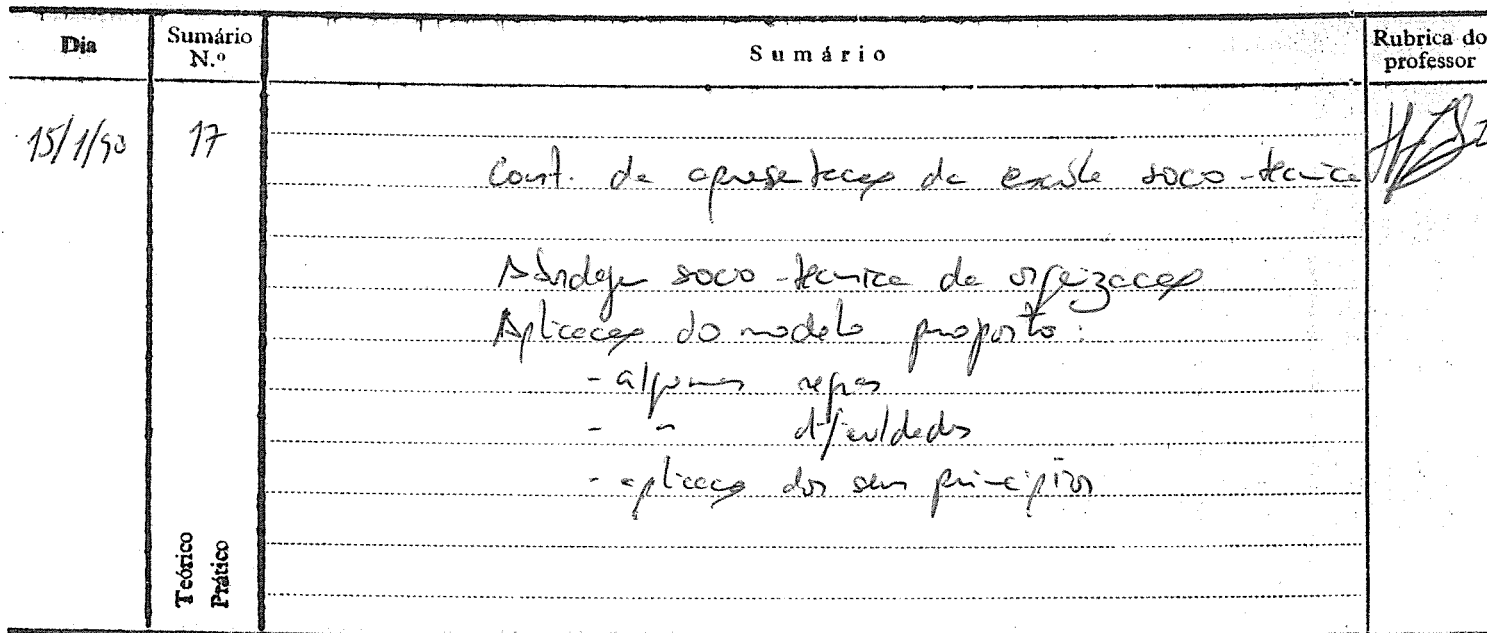 Dia
Sumário N.º
Sumário
Rubrica do professor
15/1/90
17
Cont. da apresentação da escola socio-tecnica
Abordagem socio-tecnica da organização
Aplicação do modelo proposto:
- algumas regras
- " dificuldades
- aplicação dos seus princípios
Teórico
Prático